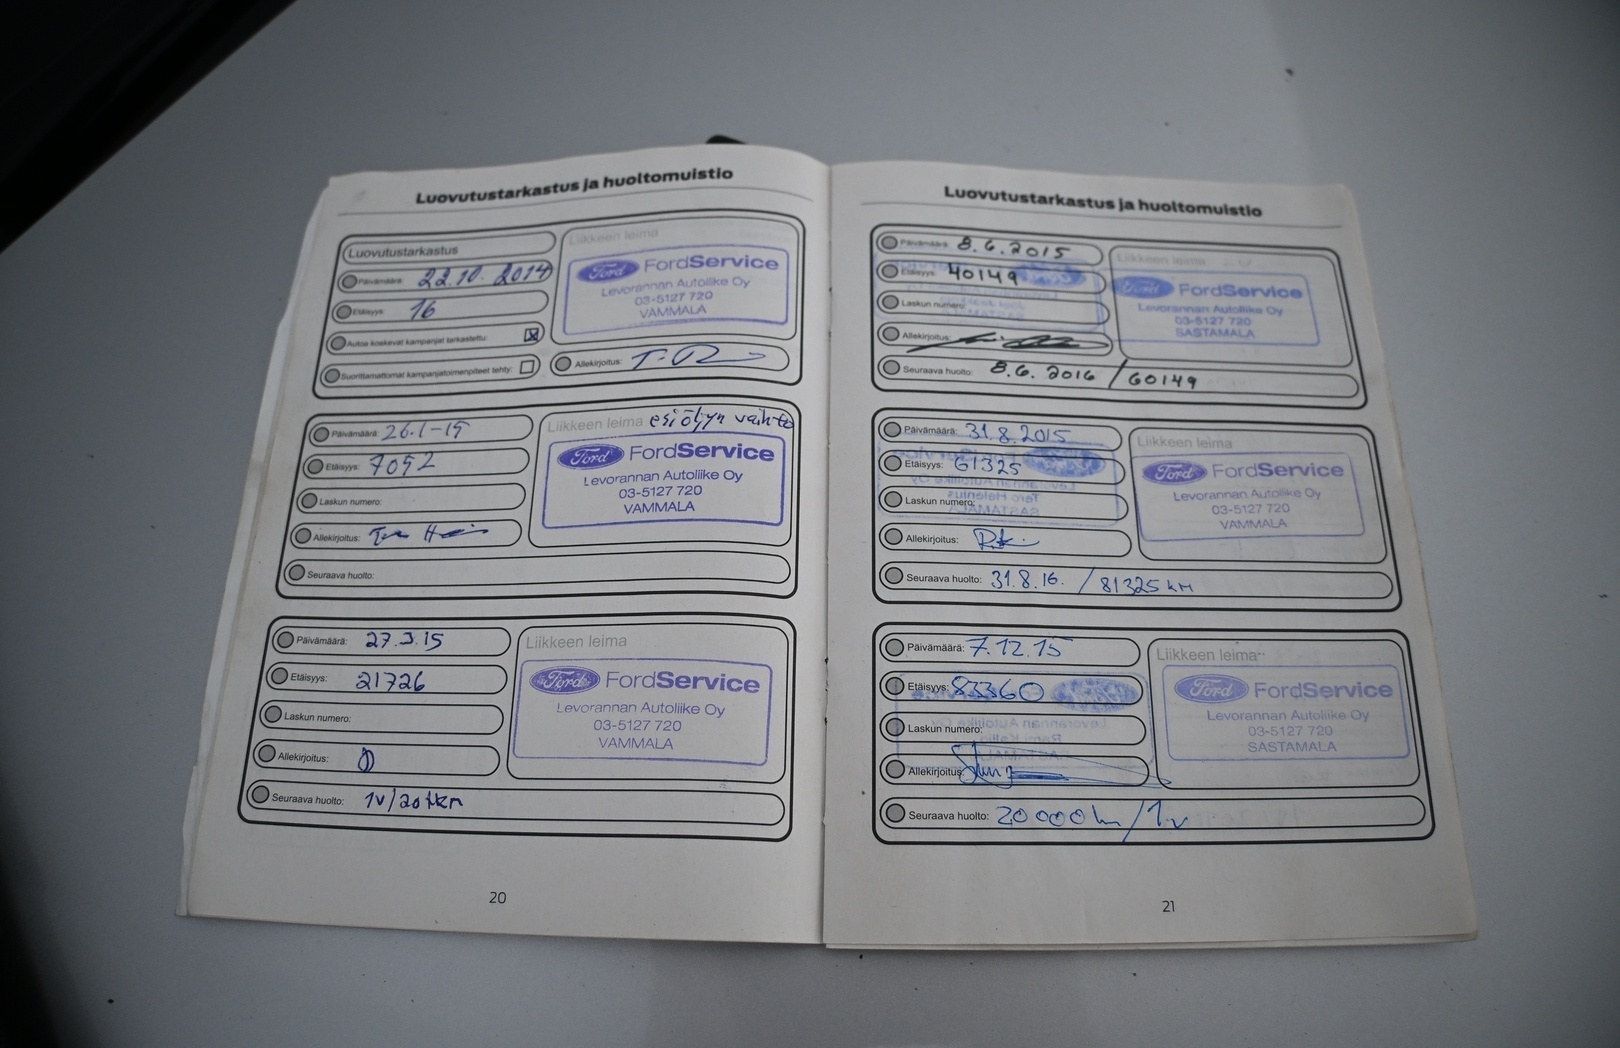 Luovutustarkastus ja huoltomuistio
Luovutustarkastus
Päivämäärä: 22.10.2014
Etäisyys: 16
Autoa koskevat kampanjat tarkastettu:
Suorittamattomat kampanjatoimenpiteet tehty:
Liikkeen leima
Ford FordService
Levorannan Autoliike Oy
03-5127 720
VAMMALA
Allekirjoitus:
Päivämäärä: 26.1-15
Etäisyys: 7092
Laskun numero:
Allekirjoitus:
Liikkeen leima esiöljyn vaihto
Ford FordService
Levorannan Autoliike Oy
03-5127 720
VAMMALA
Seuraava huolto:
Päivämäärä: 27.3.15
Etäisyys: 21726
Laskun numero:
Allekirjoitus:
Liikkeen leima
Ford FordService
Levorannan Autoliike Oy
03-5127 720
VAMMALA
Seuraava huolto: 1v/20tkm
20
Luovutustarkastus ja huoltomuistio
Päivämäärä: 8.6.2015
Etäisyys: 40149
Laskun numero:
Allekirjoitus:
Liikkeen leima
Ford FordService
Levorannan Autoliike Oy
03-5127 720
SASTAMALA
Seuraava huolto: 8.6.2016 / 60149
Päivämäärä: 31.8.2015
Etäisyys: 61325
Laskun numero:
Allekirjoitus:
Liikkeen leima
Ford FordService
Levorannan Autoliike Oy
03-5127 720
VAMMALA
Seuraava huolto: 31.8.16. / 81325 km
Päivämäärä: 7.12.15
Etäisyys: 83360
Laskun numero:
Allekirjoitus:
Liikkeen leima
Ford FordService
Levorannan Autoliike Oy
03-5127 720
SASTAMALA
Seuraava huolto: 20 000 km / 1v
21